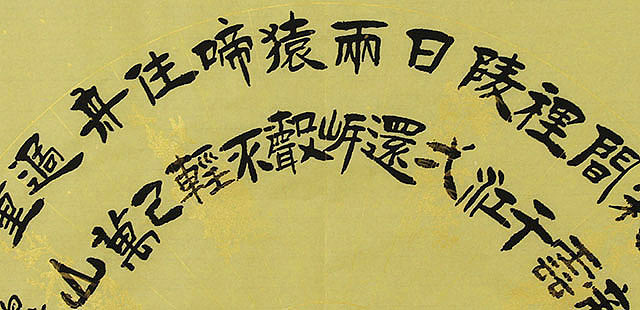 雲
間千
裡江
陵弌
日還
兩岸
猿聲
啼不
住輕
舟已
過萬
重山